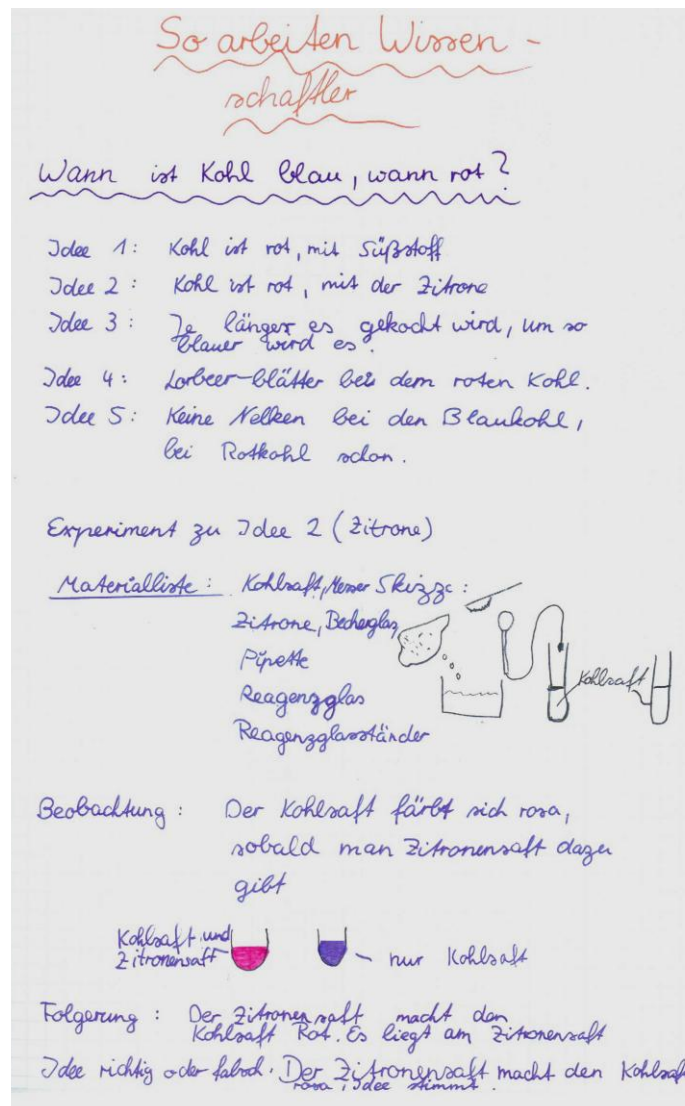 So arbeiten Wissen-
schaftler
Wann ist Kohl blau, wann rot?
Idee 1: Kohl ist rot, mit Süßstoff
Idee 2: Kohl ist rot, mit der Zitrone
Idee 3: Je länger es gekocht wird, um so
blauer wird es.
Idee 4: Lorbeer-blätter bei dem roten Kohl.
Idee 5: Keine Nelken bei den Blaukohl,
bei Rotkohl schon.
Experiment zu Idee 2 (Zitrone)
Materialliste: Kohlsaft, Messer Skizze:
Zitrone, Becherglas
Pipette
Reagenzglas
Reagenzglasständer
Kohlsaft
Beobachtung: Der Kohlsaft färbt sich rosa,
sobald man Zitronensaft dazu
gibt
Kohlsaft und
Zitronensaft
nur Kohlsaft
Folgerung: Der Zitronensaft macht den
Kohlsaft Rot. Es liegt am Zitronensaft
Idee richtig oder falsch. Der Zitronensaft macht den Kohlsaft
rosa, Idee stimmt.